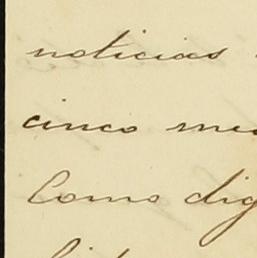 noticias
cinco me
Como dig